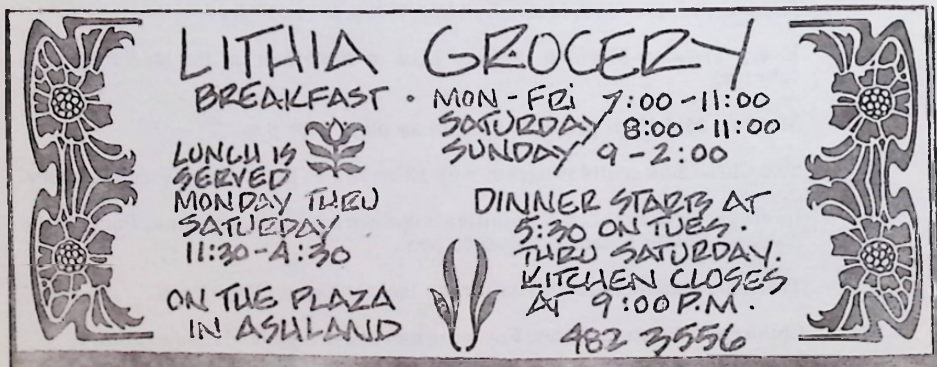 LITHIA GROCERY
BREAKFAST · MON - FRI 7:00 - 11:00
SATURDAY 8:00 - 11:00
SUNDAY 9 - 2:00
LUNCH IS
SERVED
MONDAY THRU
SATURDAY
11:30 - 4:30
ON THE PLAZA
IN ASHLAND
DINNER STARTS AT
5:30 ON TUES.
THRU SATURDAY.
KITCHEN CLOSES
AT 9:00 P.M.
482 3556